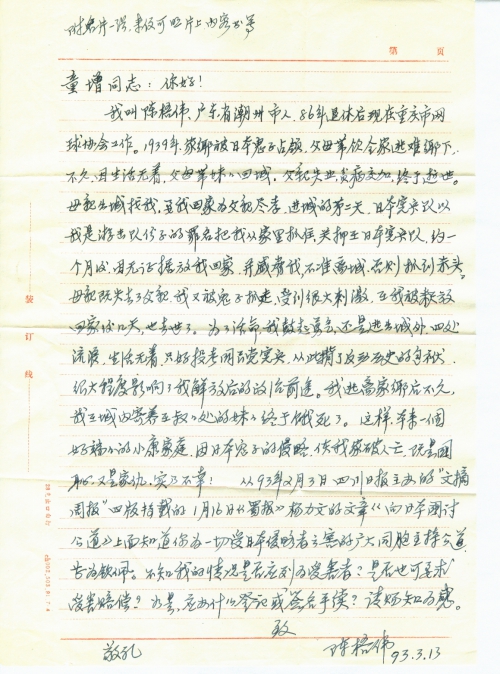 附名片一张,来信可照片上内容书写
第 页
童增同志:你好!
我叫陈格伟、广东省潮州市人,86年退休后现在重庆市网
球协会工作。1939年,家乡被日本鬼子占领,父母带领全家逃难乡下,
不久,因生活无着,父母带妹妹回城,父亲失业贫病交加,终于逝世。
母亲出城找我,要我回家为父亲尽孝,进城的第二天,日本宪兵队以
我是游击队份子的罪名把我从家里抓住,关押至日本宪兵队,约一
个月后,因无证据放我回家,并威胁我不准离城,否则抓到杀头。
母亲既失去了父亲,我又被鬼子抓走,受到很大刺激,在我被释放
回家后几天,也去世了。为了活命我鼓起勇气,还是逃出城外,四处
流浪,生活无着,只好投考国民党宪兵,从此揹了反动历史的包袱,
很大程度影响了我解放后的政治前途。我逃离家乡后不久,
我在城内寄养在叔叔处的妹妹终于饿死了。这样,本来一個
好端端的小康家庭,因日本鬼子的侵略,使我家破人亡,既是国
耻,又是家仇,实乃不幸! 从93年2月3日四川日报主办的“文摘
周报”四版转载的1月16日《蜀报》杨力文的文章《向日本讨
公道》上面知道你为一切受日本侵略者之害的广大同胞主持公道,
甚为钦佩。不知我的情况是否应列为受害者?是否也可要求
受害赔偿?如是,应办什么登记或签名手续?请师知为感。
致
敬礼
陈格伟
93.3.13
装订线